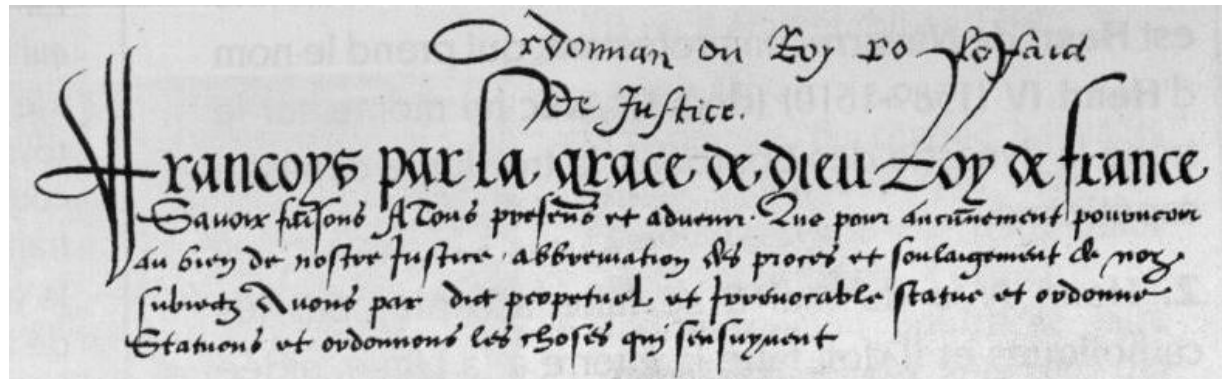 Ordonnan du Roy
De Justice.
Francoys par la grace de dieu Roy de france
Savoir faisons A Tous presens et advenir. Que pour aucunement pourveoir
au bien de nostre Justice, abbreviation des proces et soulaigement de noz
subiectz Avons par edict perpetuel et Irrevocable statue et ordonne
Statuons et ordonnons les choses qui sensuyvent